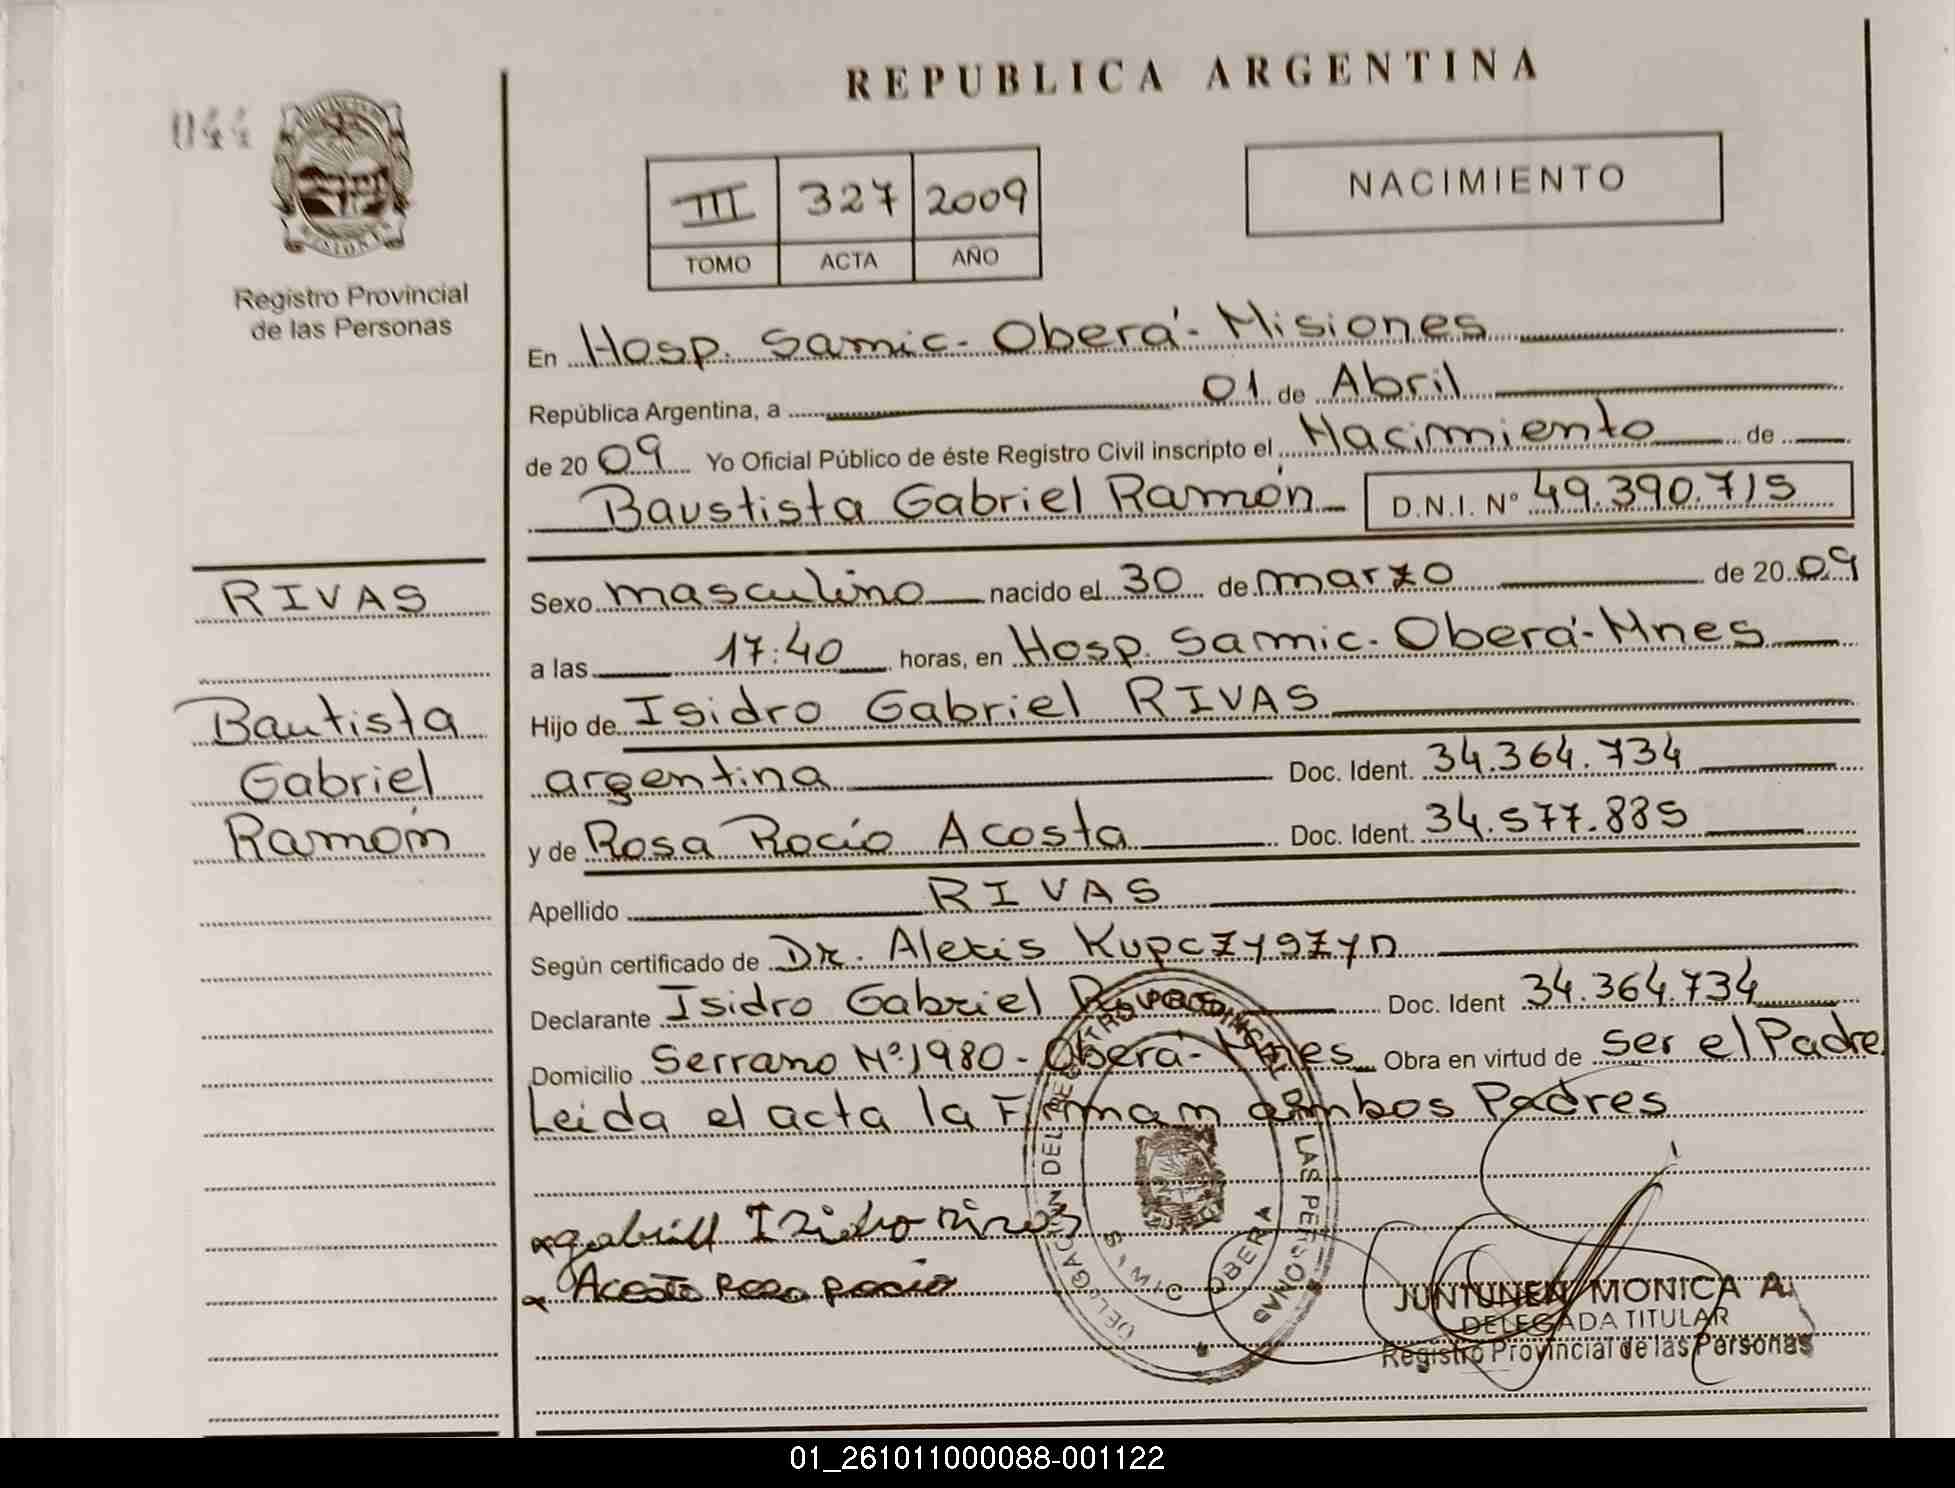 REPUBLICA ARGENTINA
044
NACIMIENTO
III 327 2009
TOMO ACTA AÑO
Registro Provincial
de las Personas
En Hosp. Samic - Oberá - Misiones
República Argentina, a 01 de Abril
de 2009 Yo Oficial Público de éste Registro Civil inscripto el Nacimiento de
Baustista Gabriel Ramón D.N.I. Nº 49.390.715
RIVAS
Bautista
Gabriel
Ramón
Sexo masculino nacido el 30 de marzo de 2009
a las 17:40 horas, en Hosp. Samic - Oberá - Mnes
Hijo de Isidro Gabriel RIVAS
argentina Doc. Ident. 34.364.734
y de Rosa Rocío Acosta Doc. Ident. 34.577.885
Apellido RIVAS
Según certificado de Dr. Alexis Kupczyszyn
Declarante Isidro Gabriel Doc. Ident 34.364.734
Domicilio Serrano Nº 1980 - Oberá - Mnes Obra en virtud de ser el Padre
Leida el acta la Firman ambos Padres
gabriel Isidro rivas
Acosta Rosa Rocio
DELEGACION DEL REGISTRO PROVINCIAL DE LAS PERSONAS
OBERA
JUNTUNEN MONICA A.
DELEGADA TITULAR
Registro Provincial de las Personas
01_261011000088-001122